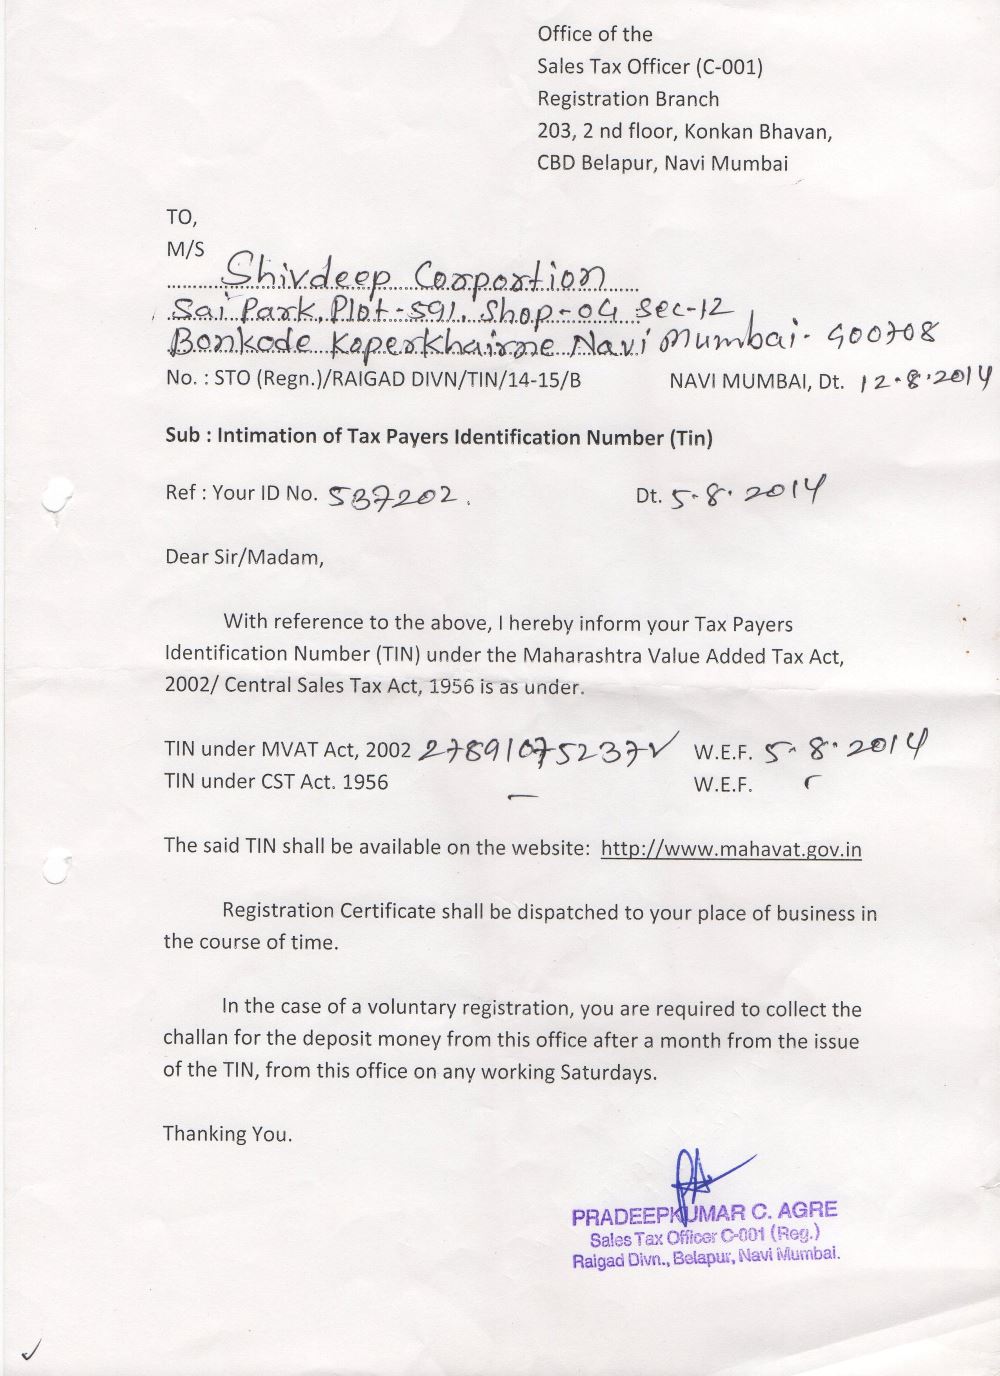 Office of the
Sales Tax Officer (C-001)
Registration Branch
203, 2 nd floor, Konkan Bhavan,
CBD Belapur, Navi Mumbai
TO,
M/S
Shivdeep Corportion
Sai Park, Plot-591, Shop-04 Sec-12
Bonkode Koperkhairne Navi Mumbai- 400708
No. : STO (Regn.)/RAIGAD DIVN/TIN/14-15/B NAVI MUMBAI, Dt. 12.8.2014
Sub : Intimation of Tax Payers Identification Number (Tin)
Ref : Your ID No. 537202. Dt. 5.8.2014
Dear Sir/Madam,
With reference to the above, I hereby inform your Tax Payers
Identification Number (TIN) under the Maharashtra Value Added Tax Act,
2002/ Central Sales Tax Act, 1956 is as under.
TIN under MVAT Act, 2002 27891075237V W.E.F. 5.8.2014
TIN under CST Act. 1956 — W.E.F.
The said TIN shall be available on the website: http://www.mahavat.gov.in
Registration Certificate shall be dispatched to your place of business in
the course of time.
In the case of a voluntary registration, you are required to collect the
challan for the deposit money from this office after a month from the issue
of the TIN, from this office on any working Saturdays.
Thanking You.
PRADEEPKUMAR C. AGRE
Sales Tax Officer C-001 (Reg.)
Raigad Divn., Belapur, Navi Mumbai.